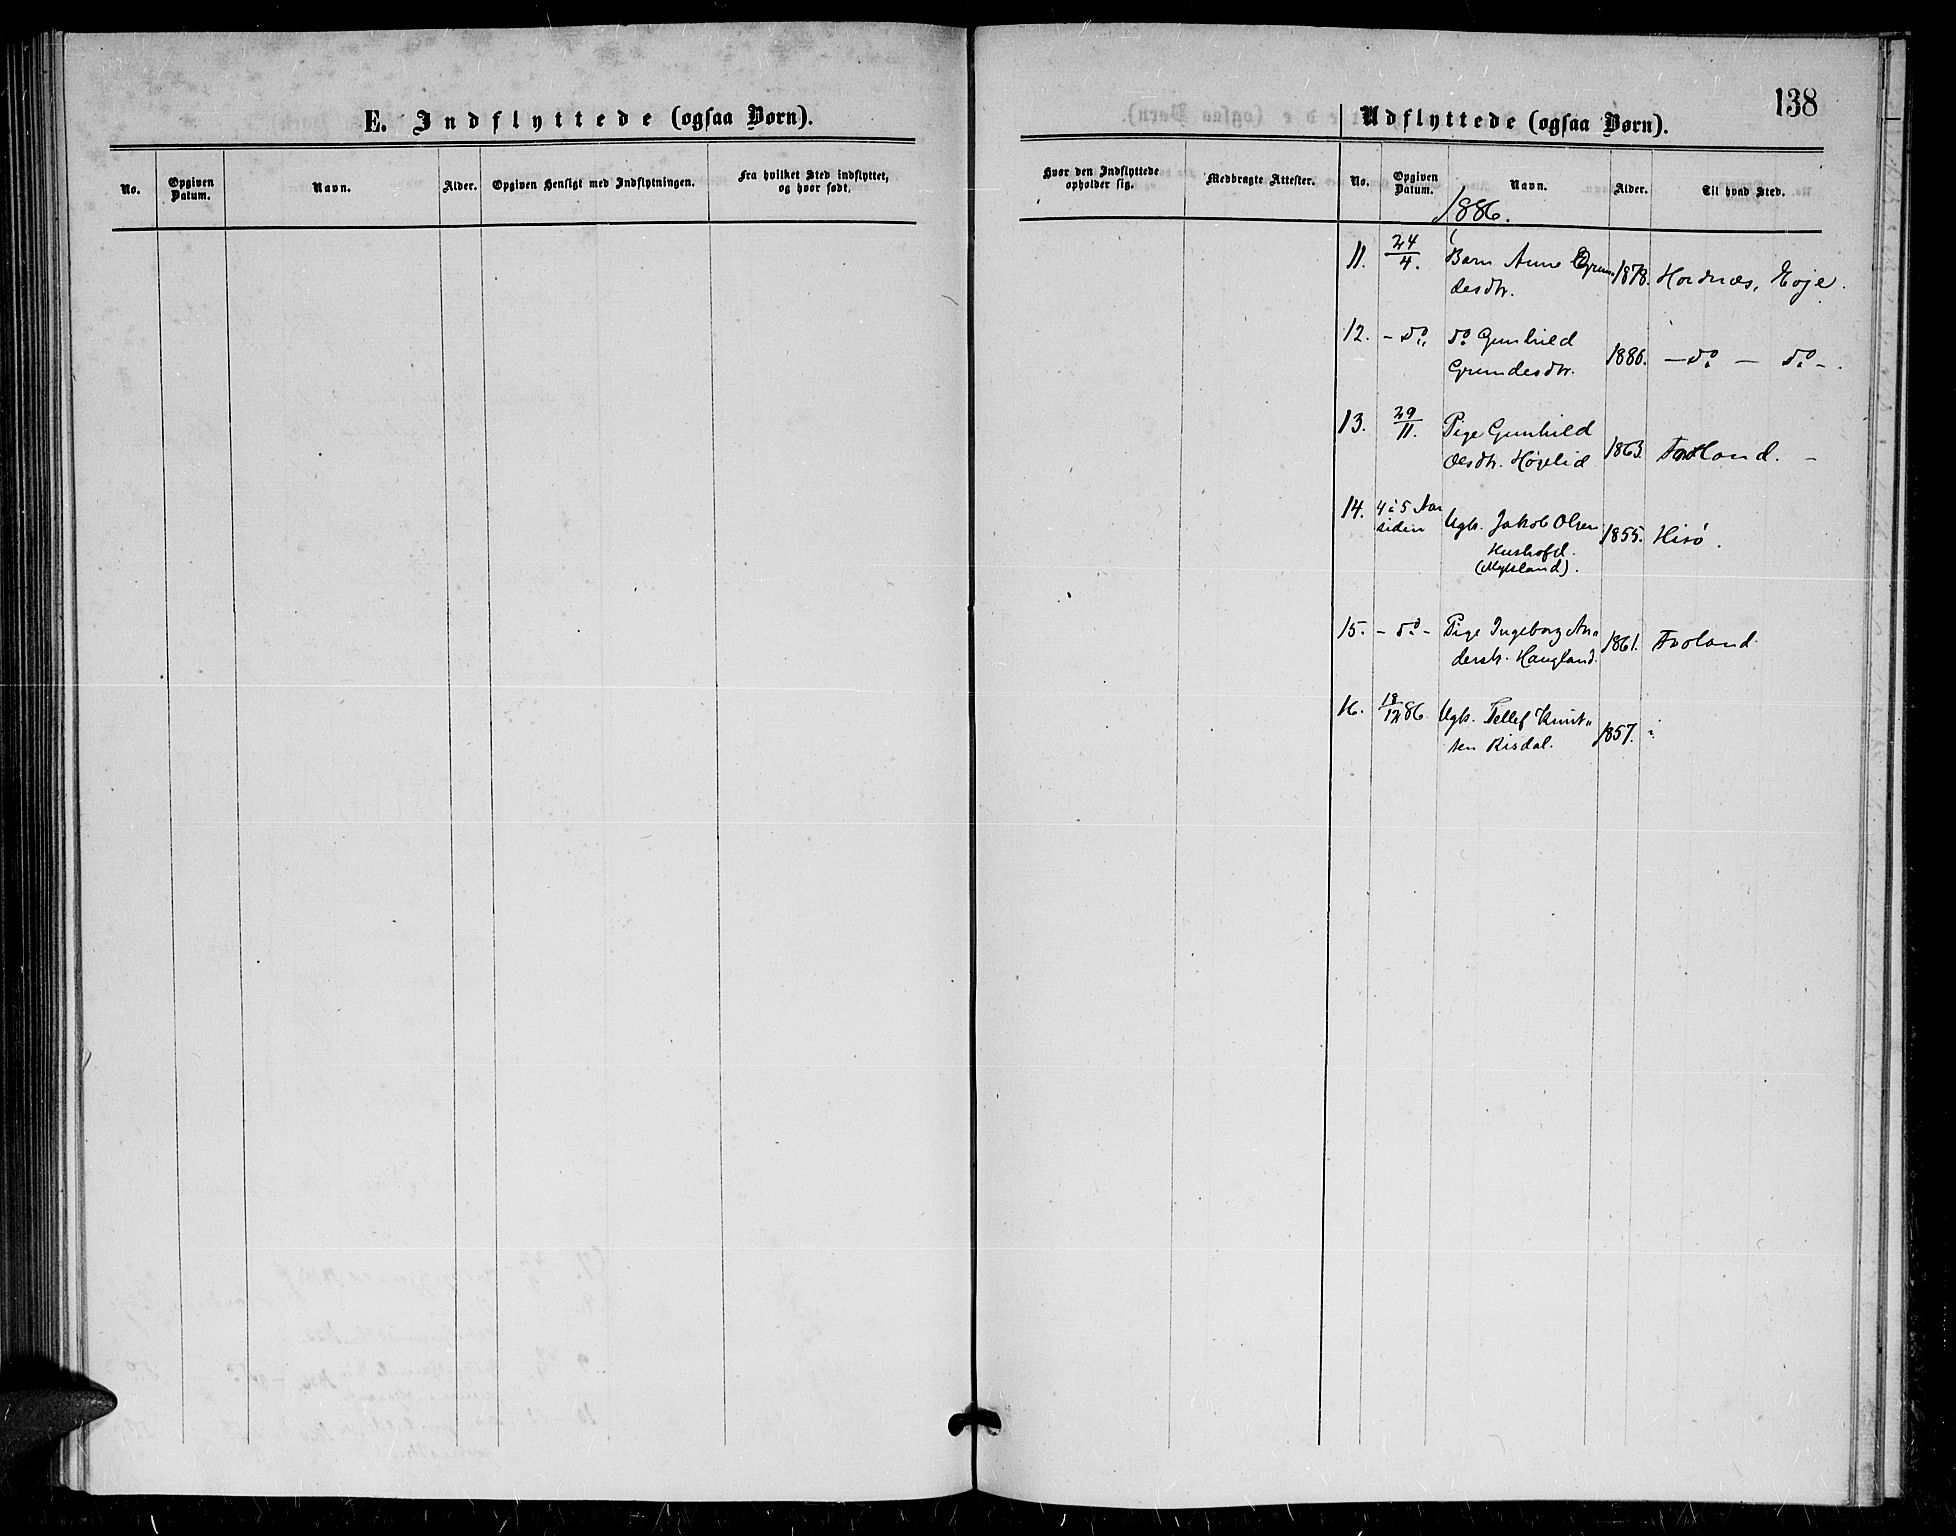 E. Indflyttede (ogsaa Børn).
No.
Opgiven Datum.
Navn.
Alder.
Opgiven Hensigt med Indflytningen.
Fra hvilket Sted indflyttet,
og hvor født.
138
Udflyttede (ogsaa Børn).
Hvor den Indflyttede
opholder sig.
Medbragte Attester.
No.
Opgiven Datum.
Navn.
Alder.
Til hvad Sted.
1886.
11. 24/4. Barn Anne Grun- 1878. Hordnæs, Evje.
desdtr.
12. - do „ do Gunhild
Grundesdtr. 1886. - do - do -.
13. 29/11. Pige Gunhild
Olsdtr. Høgelid 1863. Froland. -
14. 4 à 5 Aar
siden Ugk. Jakob Olsen 1855. Hisö.
Hushofd.
(Mykland).
15. - do - Pige Ingeborg An-
dersdtr. Haugland. 1861. Froland.
16. 18/12 86. Ugk. Tellef Knut-
sen Risdal. 1857. "